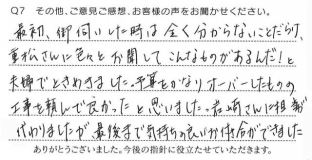 Q7 その他、ご意見ご感想、お客様の声をお聞かせください。
最初、御伺いした時は全く分からないことだらけ、
重松さんに色々とお聞して こんなものがあるんだ!と
夫婦でときめきました。予算をかなりオーバーしたものの
工事を頼んで良かったと思いました。岩崎さんに担当が
代わりましたが、最後まで気持ちの良いお付合ができました
ありがとうございました。今後の指針に役立たせていただきます。